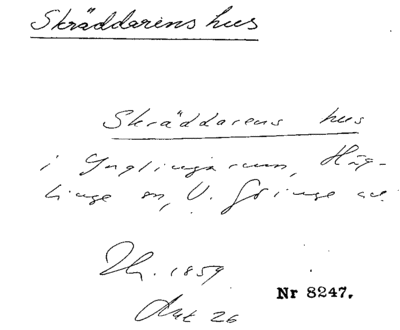 Skräddarens hus
Skräddarens hus
i Ynglingarum, Häg-
linge sn, V. Göinge
1859
Nr 8247.
26